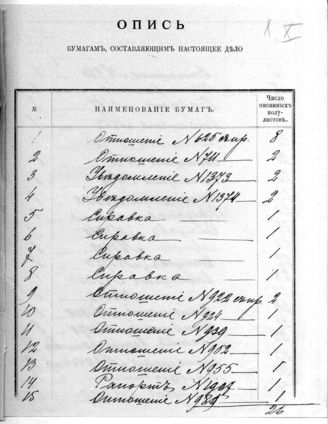 X
ОПИСЬ
БУМАГАМЪ, СОСТАВЛЯЮЩИМЪ НАСТОЯЩЕЕ ДѢЛО
№ НАИМЕНОВАНІЕ БУМАГЪ. Число писанныхъ полулистовъ.
1 Отношеніе № 625 съ пр. 8
2 Отношеніе № 711 2
3 Увѣдомленіе № 1373 2
4 Увѣдомленіе № 1374 2
5 Справка 1
6 Справка 1
7 Справка 1
8 Справка 1
9 Отношеніе № 922 съ пр. 2
10 Отношеніе № 924 1
11 Отношеніе № 939 1
12 Отношеніе № 902 1
13 Отношеніе № 955 1
14 Рапортъ 1
15 Отношеніе 1
26